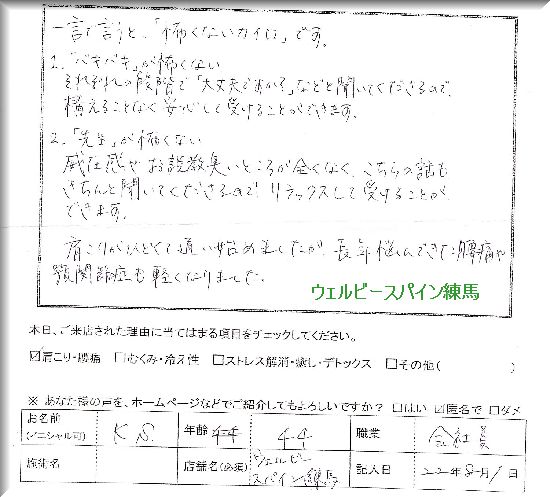 一言で言うと、「怖くないカイロ」です。
1.「バキバキ」が怖くない
それぞれの段階で「大丈夫ですか?」などと聞いてくださるので、
構えることなく安心して受けることができます。
2.「先生」が怖くない
威圧感やお説教臭いところが全くなく、こちらの話も
きちんと聞いてくださるので、リラックスして受けることが
できます。
肩こりがひどくて通い始めましたが、長年悩んできた腰痛や
顎関節症も軽くなりました。
ウェルビースパイン練馬
本日、ご来店された理由に当てはまる項目をチェックしてください。
☑肩こり・腰痛 □むくみ・冷え性 □ストレス解消・癒し・デトックス □その他( )
※ あなた様の声を、ホームページなどでご紹介してもよろしいですか? □はい ☑匿名で □ダメ
お名前 (イニシャル可) K S. 年齢 44 職業 会社員
施術名 店舗名(必須) ウェルビースパイン練馬 記入日 22年8月1日